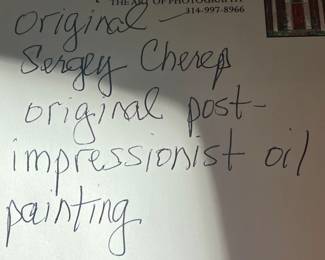 THE ART OF PHOTOGRAPHY
314-997-8966
original —
Sergey Cherep
original post-
impressionist oil
painting